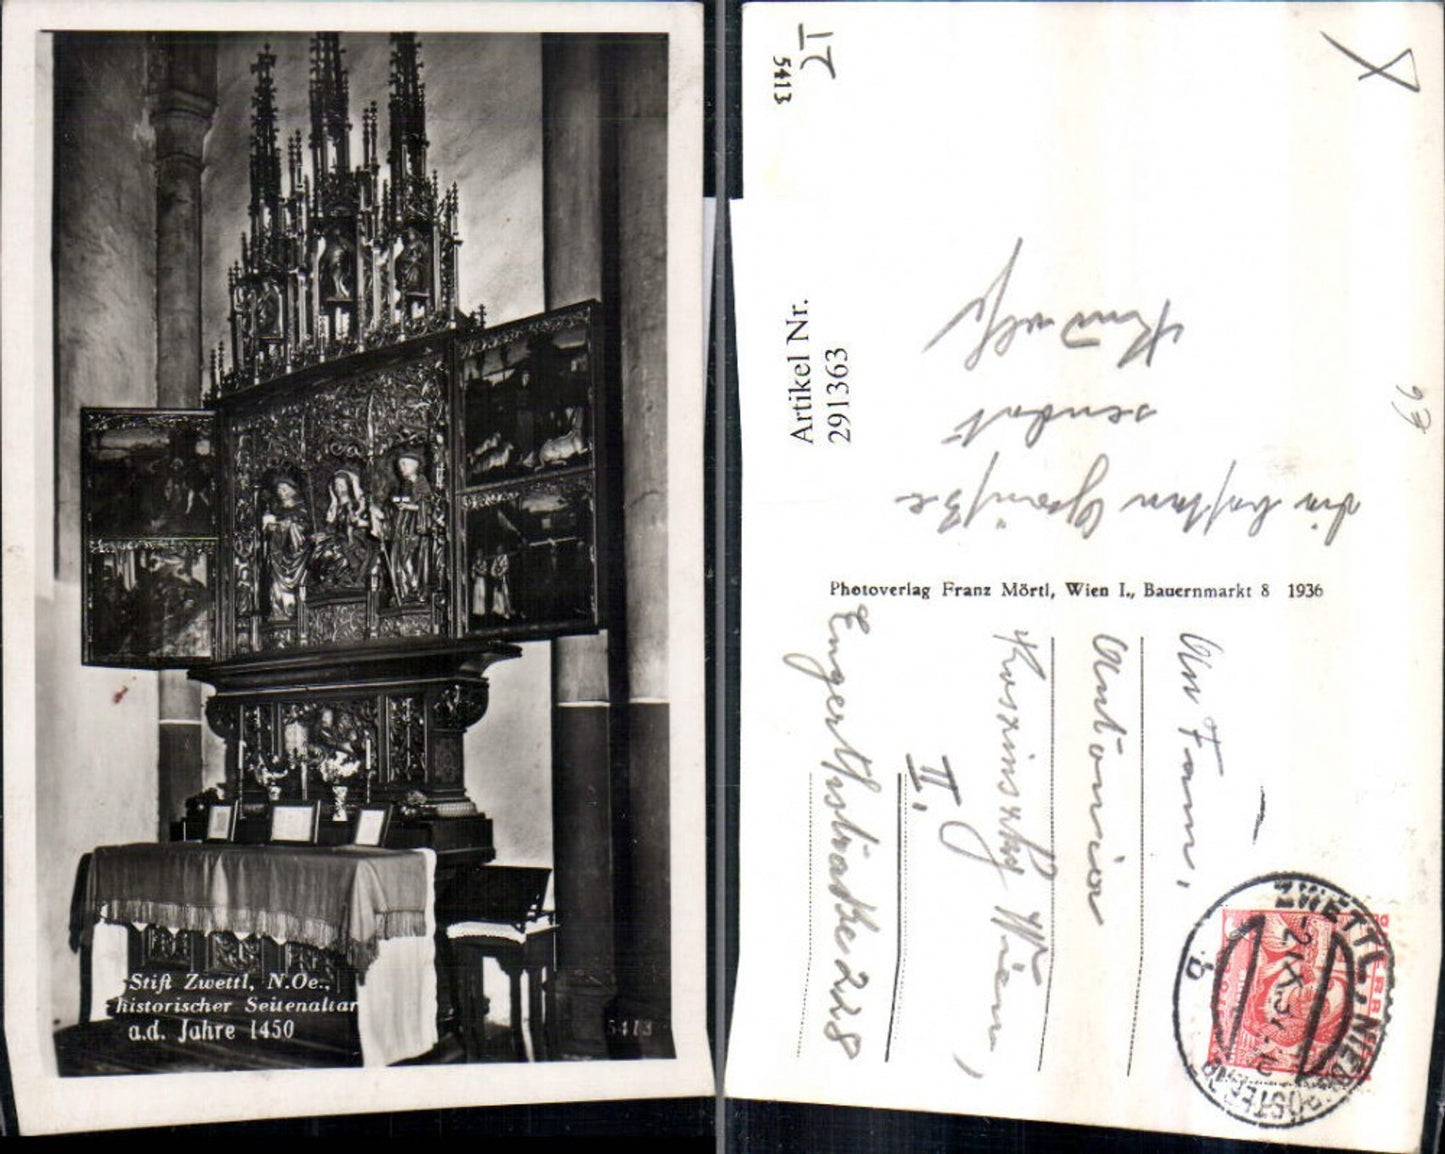 Stift Zwettl, N.Oe.,
historischer Seitenaltar
a.d. Jahre 1450
5413
5413
Artikel Nr.
291363
die besten Grüße
sendet
Photoverlag Franz Mörtl, Wien I., Bauernmarkt 8 1936
An Fam,
Antonia
Wien,
II,
Engerthstraße 228
ZWETTL, NIEDERÖSTERR.
b